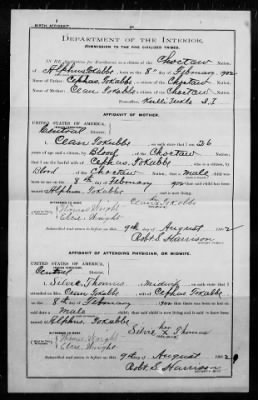 BIRTH AFFIDAVIT
DEPARTMENT OF THE INTERIOR,
COMMISSION TO THE FIVE CIVILIZED TRIBES.
IN RE Application for Enrollment, as a citizen of the Choctaw Nation,
of Alphus Foxabbe, born on the 8th day of February, 1902
Name of Father: Cephus Foxabbe a citizen of the Choctaw Nation.
Name of Mother: Cean Foxabbe a citizen of the Choctaw Nation.
Postoffice, I.T.
AFFIDAVIT OF MOTHER.
UNITED STATES OF AMERICA,
Central District.
I, Cean Foxabbe, on oath state that I am 26
years of age and a citizen, by Blood, of the Choctaw Nation;
that I am the lawful wife of Cephus Foxabbe, who is a citizen, by
Blood of the Choctaw Nation; that a male child was
born to me on 8th day of February 1902; that said child has been
named Alphus Foxabbe, and is now living.
Cean Foxabbe
Thomas Wright
Elsie Wright
Subscribed and sworn to before me this 9th day of August 1902
Robt. S. Harrison
AFFIDAVIT OF ATTENDING PHYSICIAN, OR MIDWIFE.
UNITED STATES OF AMERICA,
Central District.
I, Silve Thomas, a Midwife, on oath state that I
attended on Mrs. Cean Foxabbe, wife of Cephus Foxabbe
on the 8th day of February, 1902; that there was born to her on said date a
male child; that said child is now living and is said to have been
named Alphus Foxabbe
Silve her x Thomas
Thomas Wright
Elsie Wright
Subscribed and sworn to before me this 9 day of August 1902
Robt. S. Harrison